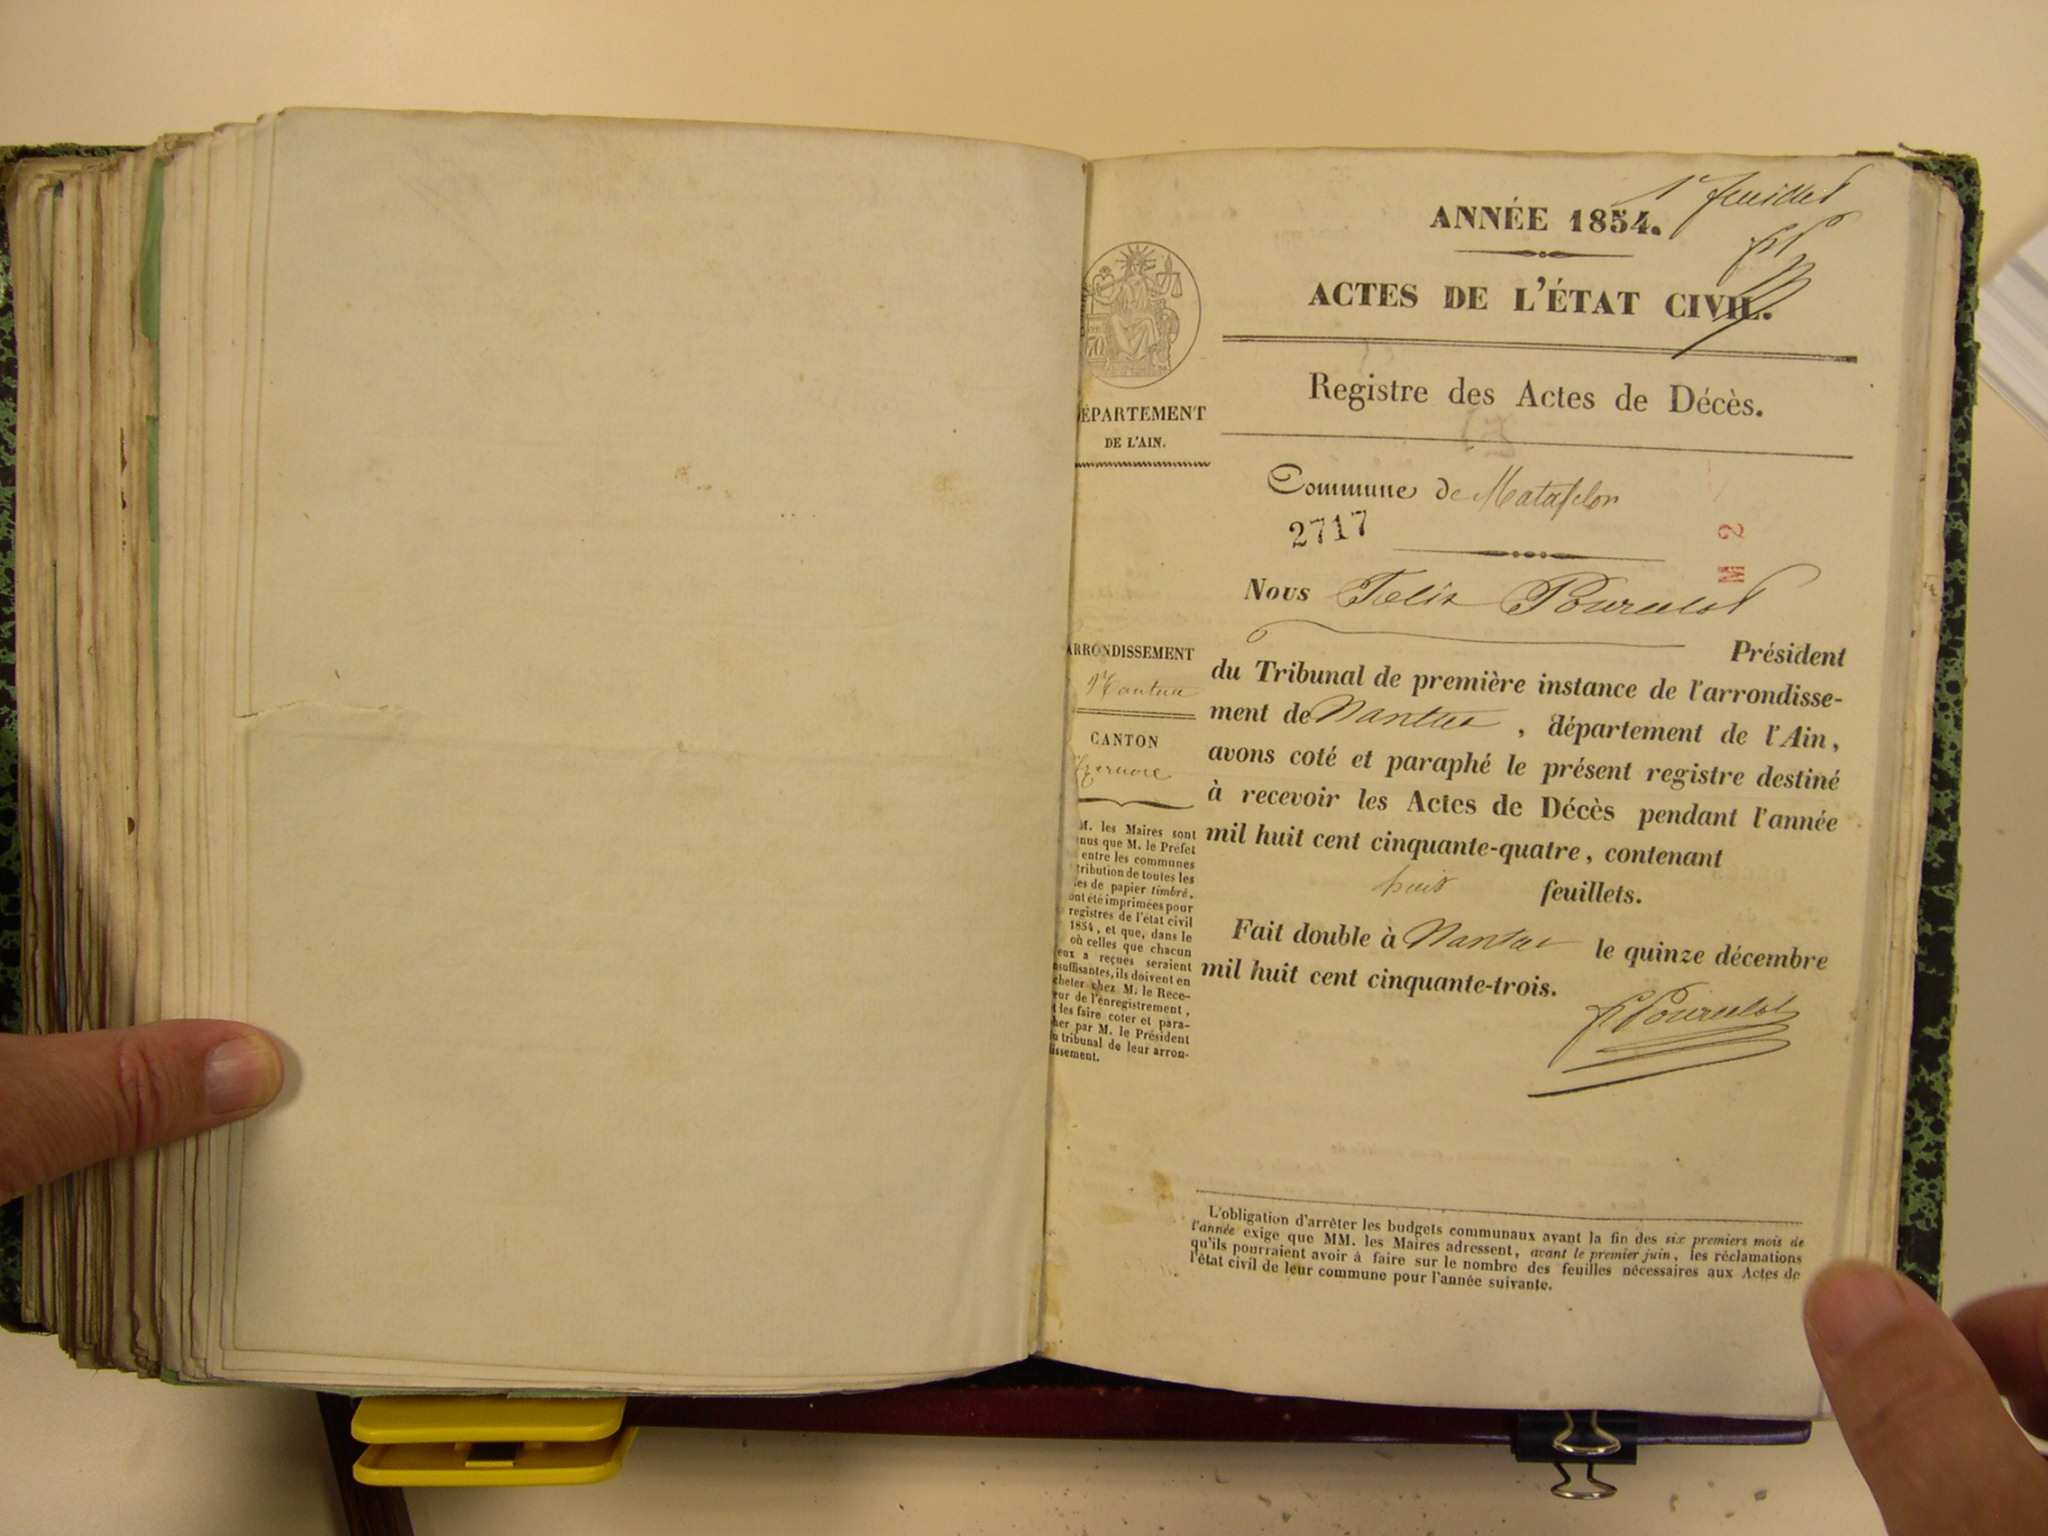 1r feuillet
ANNÉE 1854.
ACTES DE L'ÉTAT CIVIL.
Registre des Actes de Décès.
ÉPARTEMENT
DE L'AIN.
Commune de Matafelon
2717
M 2
Nous Félix Pourcelot
Président
du Tribunal de première instance de l'arrondisse-
ment de Nantua, département de l'Ain,
avons coté et paraphé le présent registre destiné
à recevoir les Actes de Décès pendant l'année
mil huit cent cinquante-quatre, contenant
huit feuillets.
Fait double à Nantua le quinze décembre
mil huit cent cinquante-trois.
F Pourcelot
ARRONDISSEMENT
Nantua
CANTON
Izernore
M. les Maires sont
nus que M. le Préfet
entre les communes
tribution de toutes les
les de papier timbré,
ont été imprimées pour
registres de l'état civil
1854, et que, dans le
où celles que chacun
eux a reçues seraient
nsuffisantes, ils doivent en
cheter chez M. le Rece-
eur de l'enregistrement,
t les faire coter et para-
her par M. le Président
u tribunal de leur arron-
issement.
L'obligation d'arrêter les budgets communaux avant la fin des six premiers mois de
l'année exige que MM. les Maires adressent, avant le premier juin, les réclamations
qu'ils pourraient avoir à faire sur le nombre des feuilles nécessaires aux Actes de
l'état civil de leur commune pour l'année suivante.